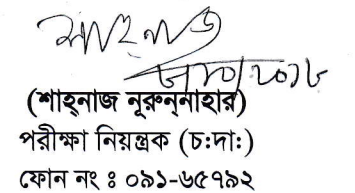 শাহনাজ
(শাহ্নাজ নূরুন্নাহার)
পরীক্ষা নিয়ন্ত্রক (চ:দা:)
ফোন নং ঃ ০৯১-৬৫৭৯২